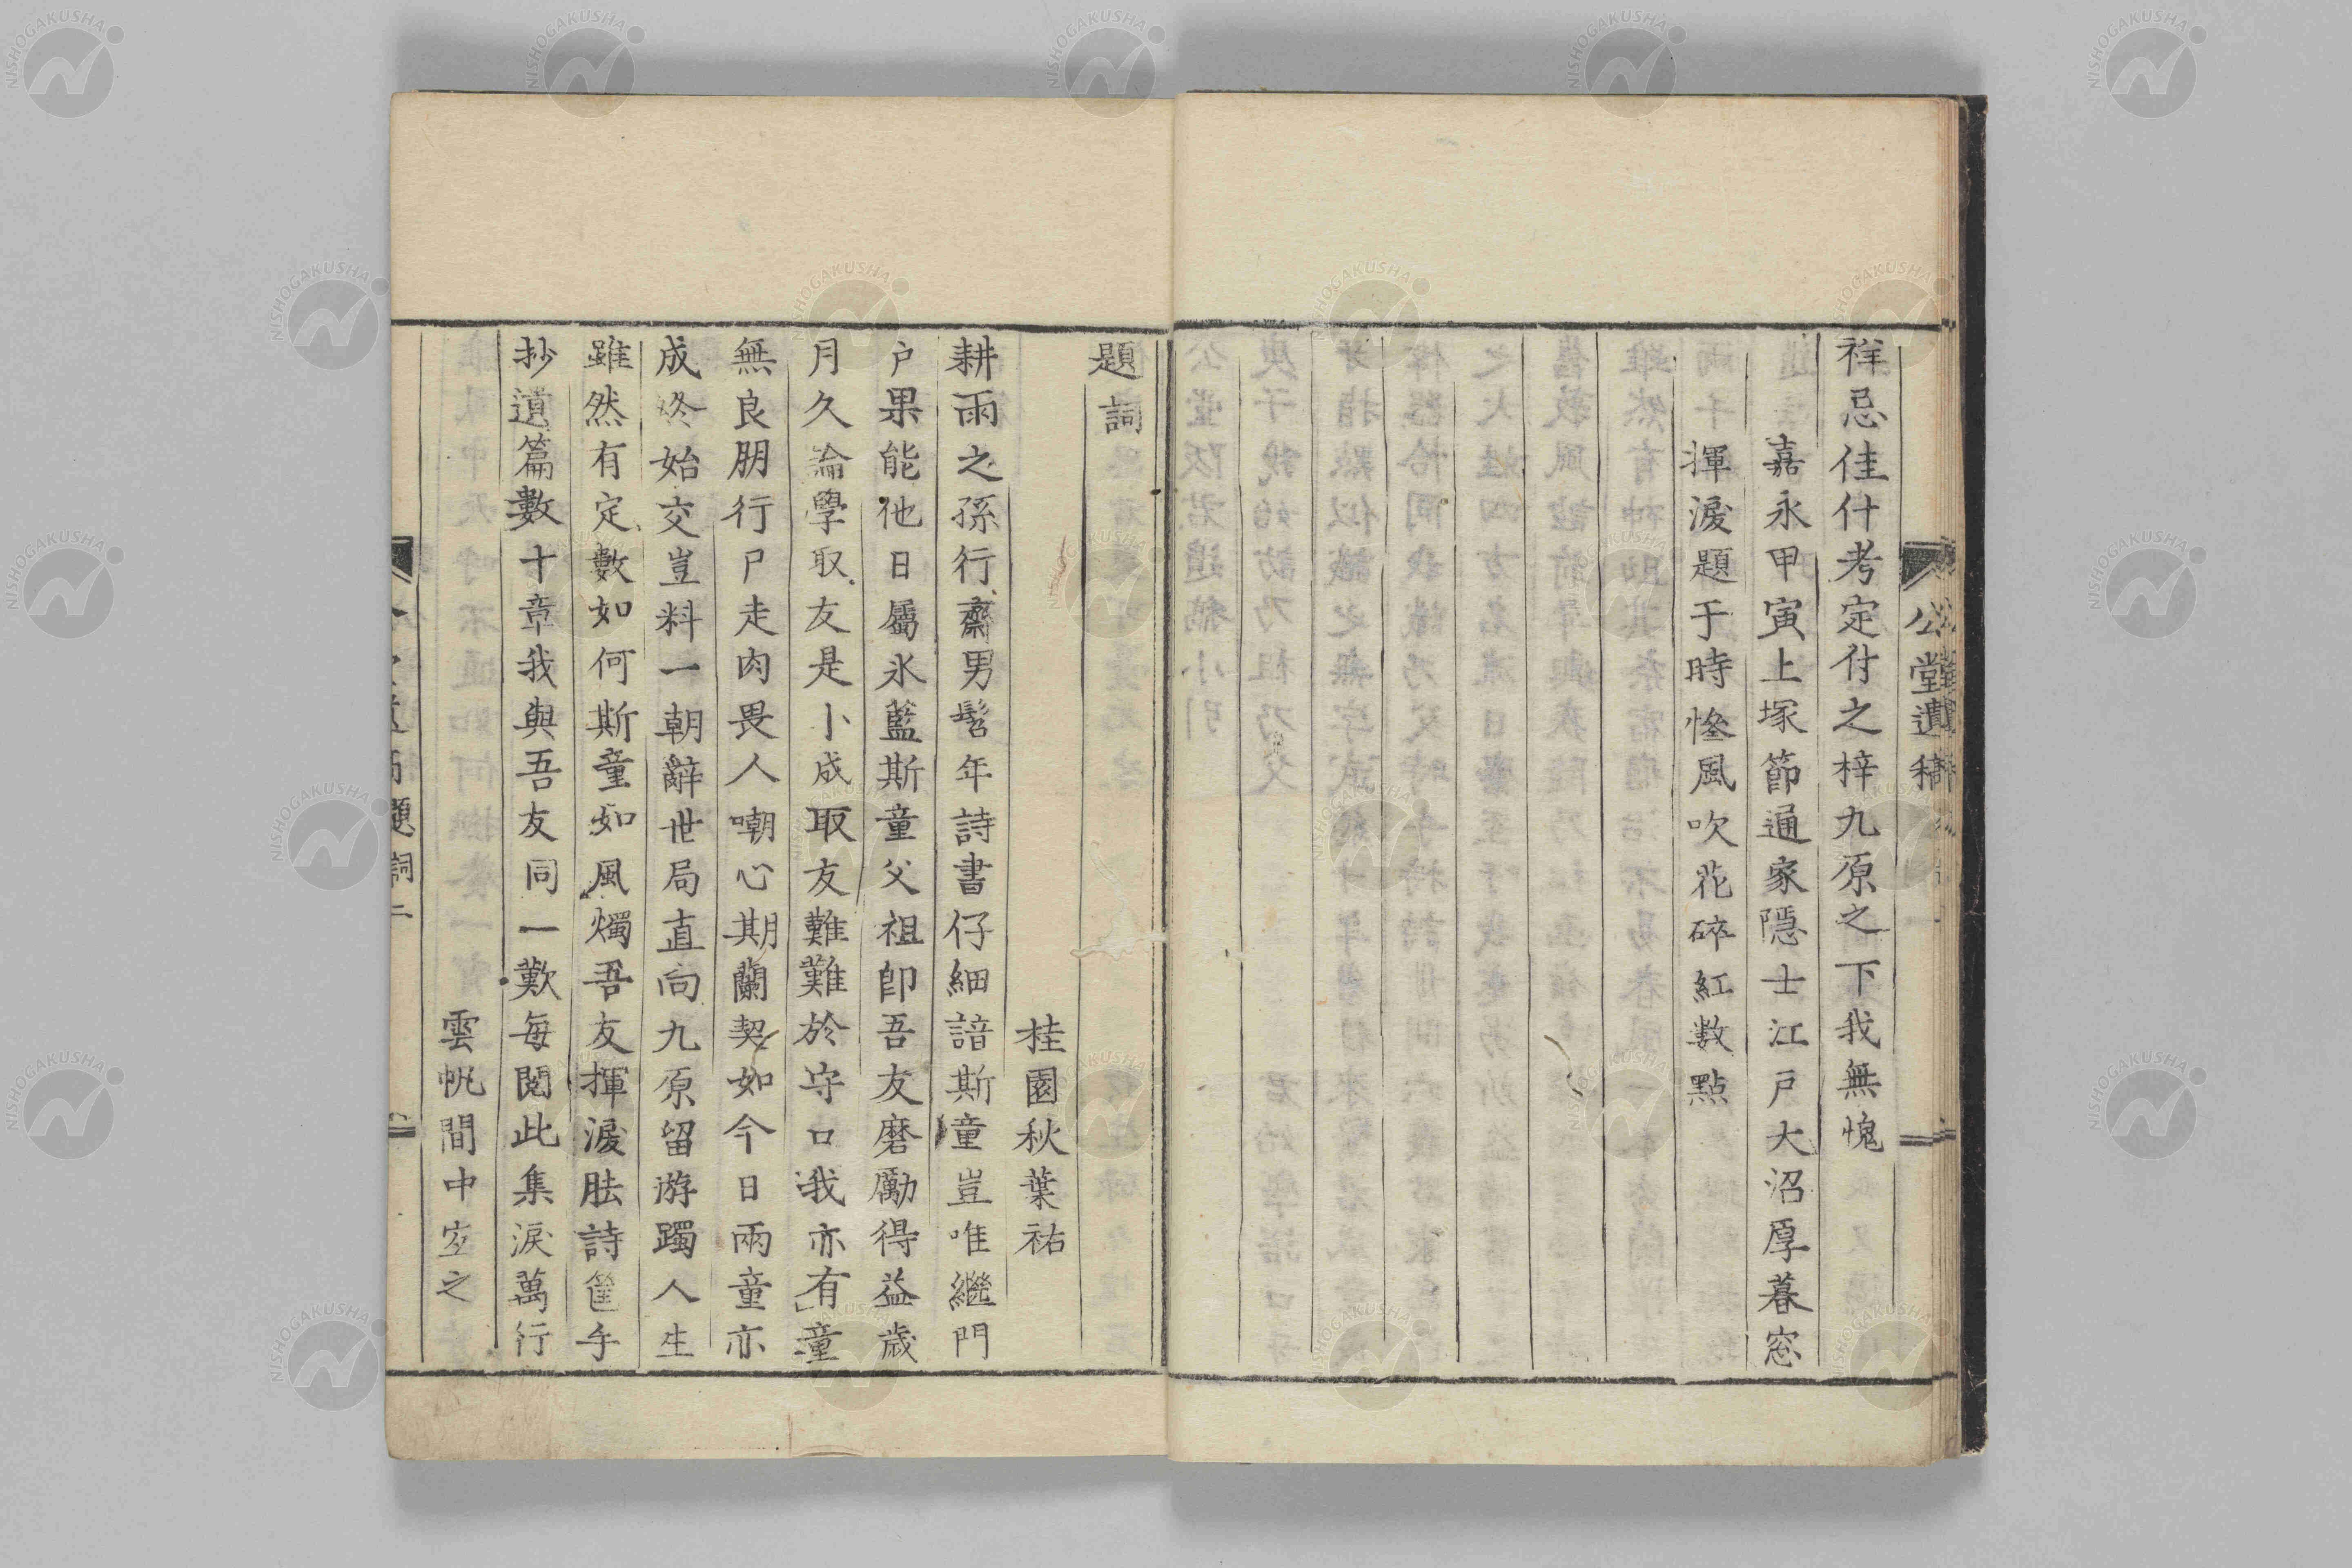 公堂遺稿
祥忌佳什考定付之梓九原之下我無愧
嘉永甲寅上塚節通家隱士江戸大沼厚暮窓
揮淚題于時惨風吹花碎紅数點
題詞
桂園秋葉祐
耕雨之孫行齋男髫年詩書仔細諳斯童豈唯繼門
戸果能他日屬氷藍斯童父祖卽吾友磨勵得益歲
月久論學取友是小成取友難難於守口我亦有童
無良朋行尸走肉畏人嘲心期蘭契如今日兩童亦
成終始交豈料一朝辭世局直向九原留游躅人生
雖然有定數如何斯童如風燭吾友揮淚胠詩篋手
抄遺篇數十章我與吾友同一歎每閱此集淚萬行
雲帆間中宏之
題詞二
NISHOGAKUSHA